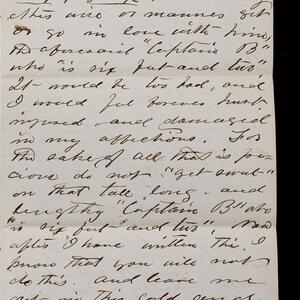 this wise or manner get
so in love with him,
the aforesaid "Captain B"
who "is six feet and two"
It would be too bad, and
I would feel forever hurt,
injured and damaged
in my affections. For
the sake of all that is pre-
cious do not "get sweet"
on that tall, long, and
lengthy "Captain B" who
"is six feet and two". Now
after I have written this, I
know that you will not
do this, and leave me
out in this cold